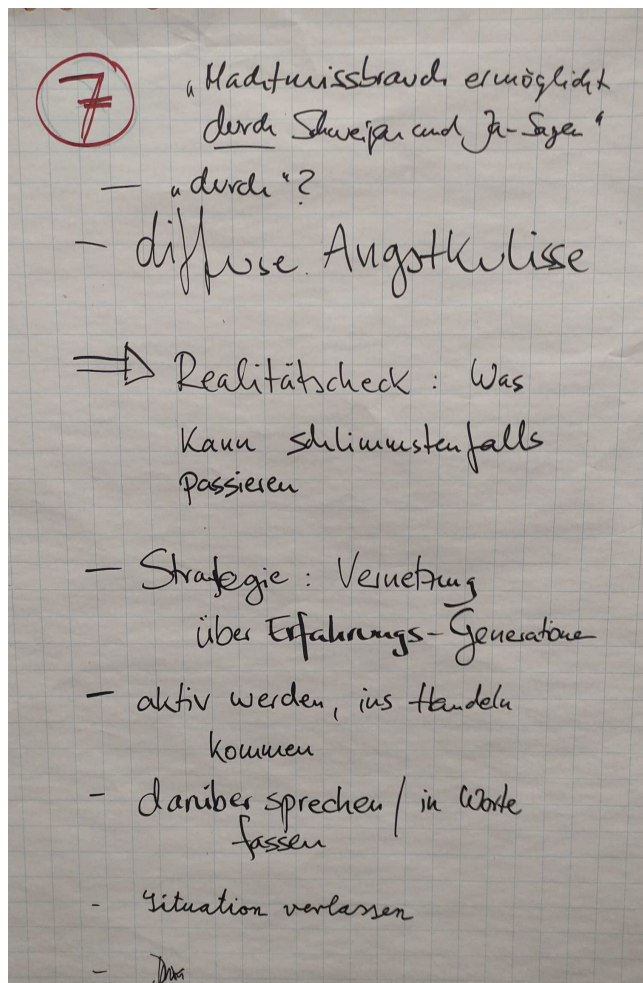 7
„Machtmissbrauch ermöglicht
durch Schweigen und Ja-Sagen“
– „durch“?
– diffuse Angstkulisse
⇒ Realitätscheck : Was
kann schlimmstenfalls
passieren
– Strategie : Vernetzung
über Erfahrungs-Generatione
– aktiv werden, ins Handeln
kommen
– darüber sprechen / in Worte
fassen
- Situation verlassen
-